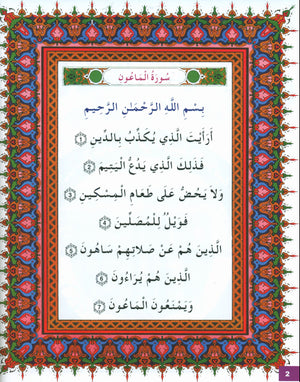 سُورَةُ الْمَاعُونِ
بِسْمِ اللَّهِ الرَّحْمَٰنِ الرَّحِيمِ
أَرَأَيْتَ الَّذِي يُكَذِّبُ بِالدِّينِ ١
فَذَلِكَ الَّذِي يَدُعُّ الْيَتِيمَ ٢
وَلَا يَحُضُّ عَلَى طَعَامِ الْمِسْكِينِ ٣
فَوَيْلٌ لِلْمُصَلِّينَ ٤
الَّذِينَ هُمْ عَنْ صَلَاتِهِمْ سَاهُونَ ٥
الَّذِينَ هُمْ يُرَاءُونَ ٦
وَيَمْنَعُونَ الْمَاعُونَ ٧
2